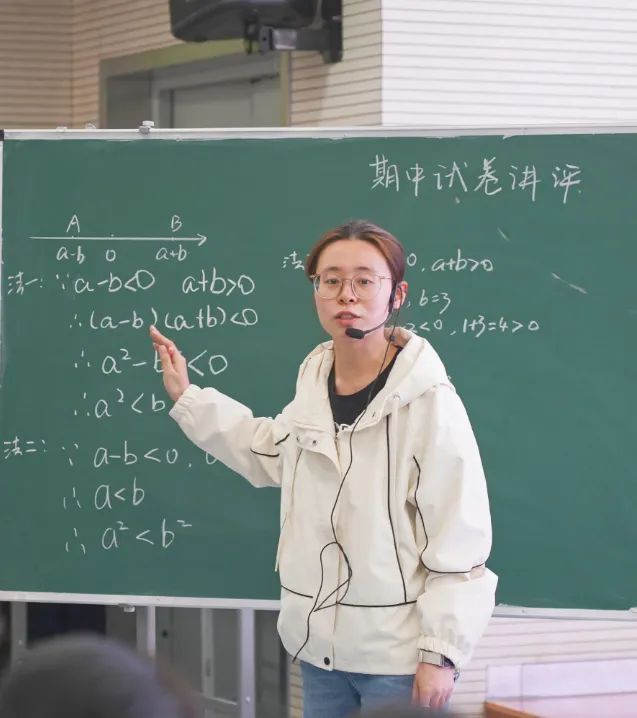 期中试卷讲评
A B
a-b 0 a+b
法一: ∵ a-b<0 a+b>0
∴ (a-b)(a+b)<0
∴ a²- <0
∴ a²<b
法二: ∵ a-b<0,
∴ a<b
∴ a²<b²
法 0, a+b>0
, b=3
2<0, 1+3=4>0